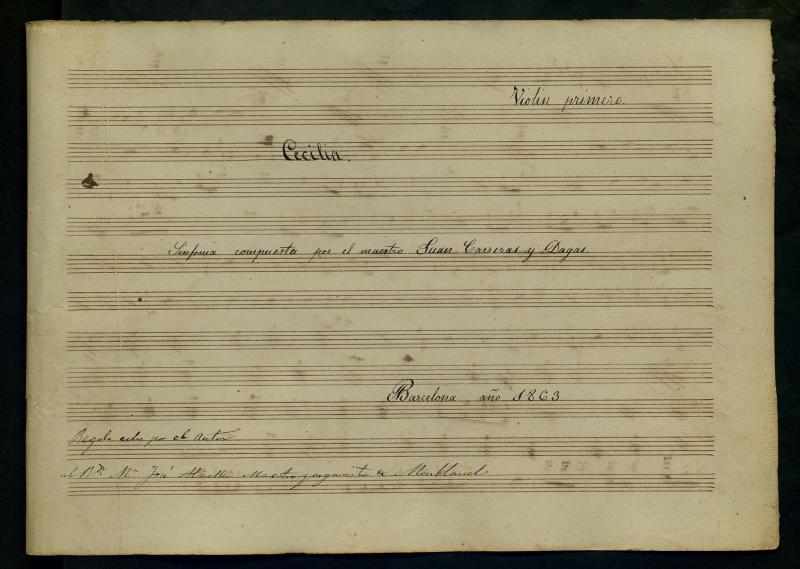 Violin primero.
Cecilia.
Sinfonia compuesta por el maestro Juan Carreras y Dagas.
Barcelona año 1863
Regalo echo por el autor
al Rdo. Mn José Maestro y organista de Monblanch